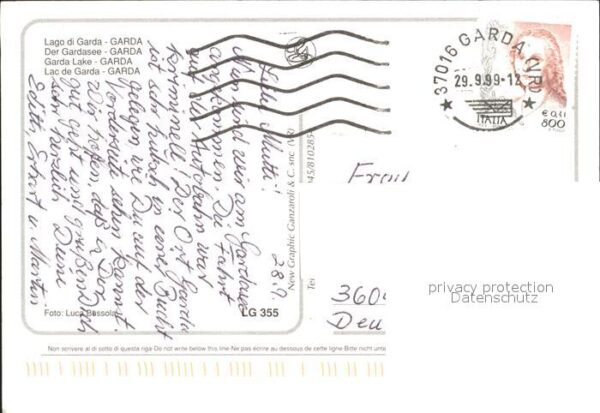 Lago di Garda - GARDA
Der Gardasee - GARDA
Garda Lake - GARDA
Lac de Garda - GARDA
37016 GARDA (VR)
29.9.99-12
ITALIA
€ 0,41
800
28.9.
Liebe Mutti!
Nun sind wir am Gardasee
angekommen. Die Fahrt
auf der Autobahn war
Der Ort Garda
ist sehr hübsch in einer Bucht
gelegen wie Du auf der
Vorderseite sehen kannst.
Wir hoffen, daß es Dir
gut geht und grüßen Dich
herzlich Deine
Edith u. Martin
New Graphic Ganzaroli & C. snc (VR)
045/810285
Tel
Frau
360
Deu
privacy protection
Datenschutz
Foto: Luca Passola
LG 355
Non scrivere al di sotto di questa riga-Do not write below this line-Ne pas écrire au dessous de cette ligne-Bitte nicht unter